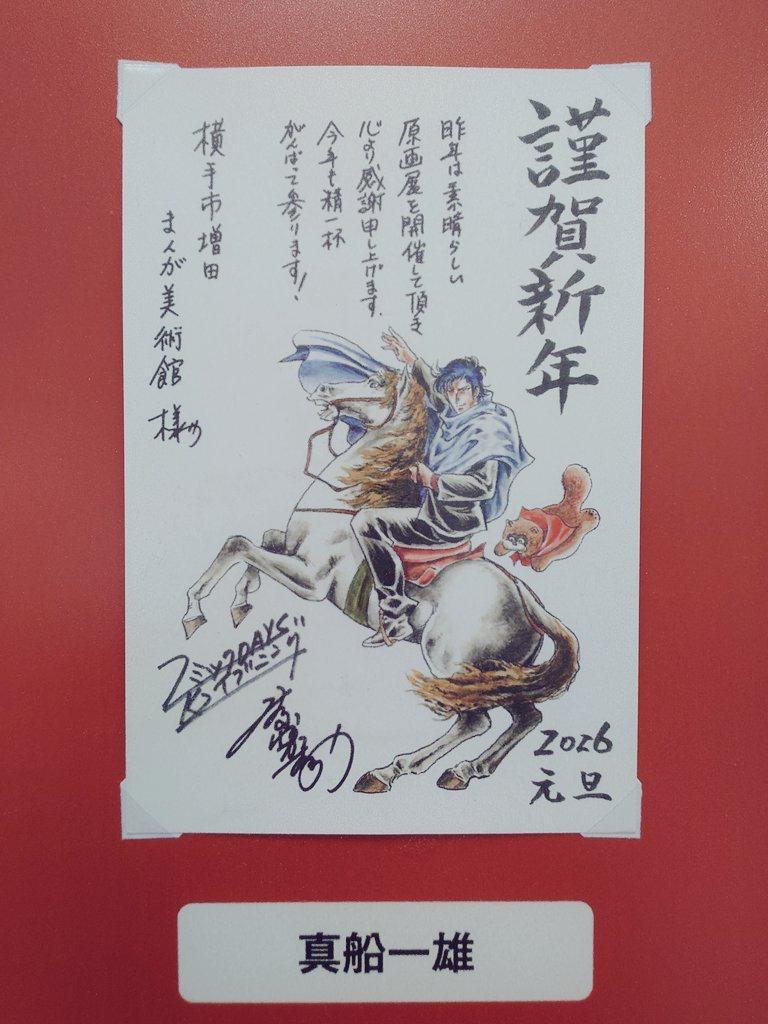 謹賀新年
昨年は素晴らしい
原画展を開催して頂き
心より感謝申し上げます.
今年も精一杯
がんばって参ります!
横手市増田
まんが美術館
様
コミックDAYS
2026
元旦
真船一雄